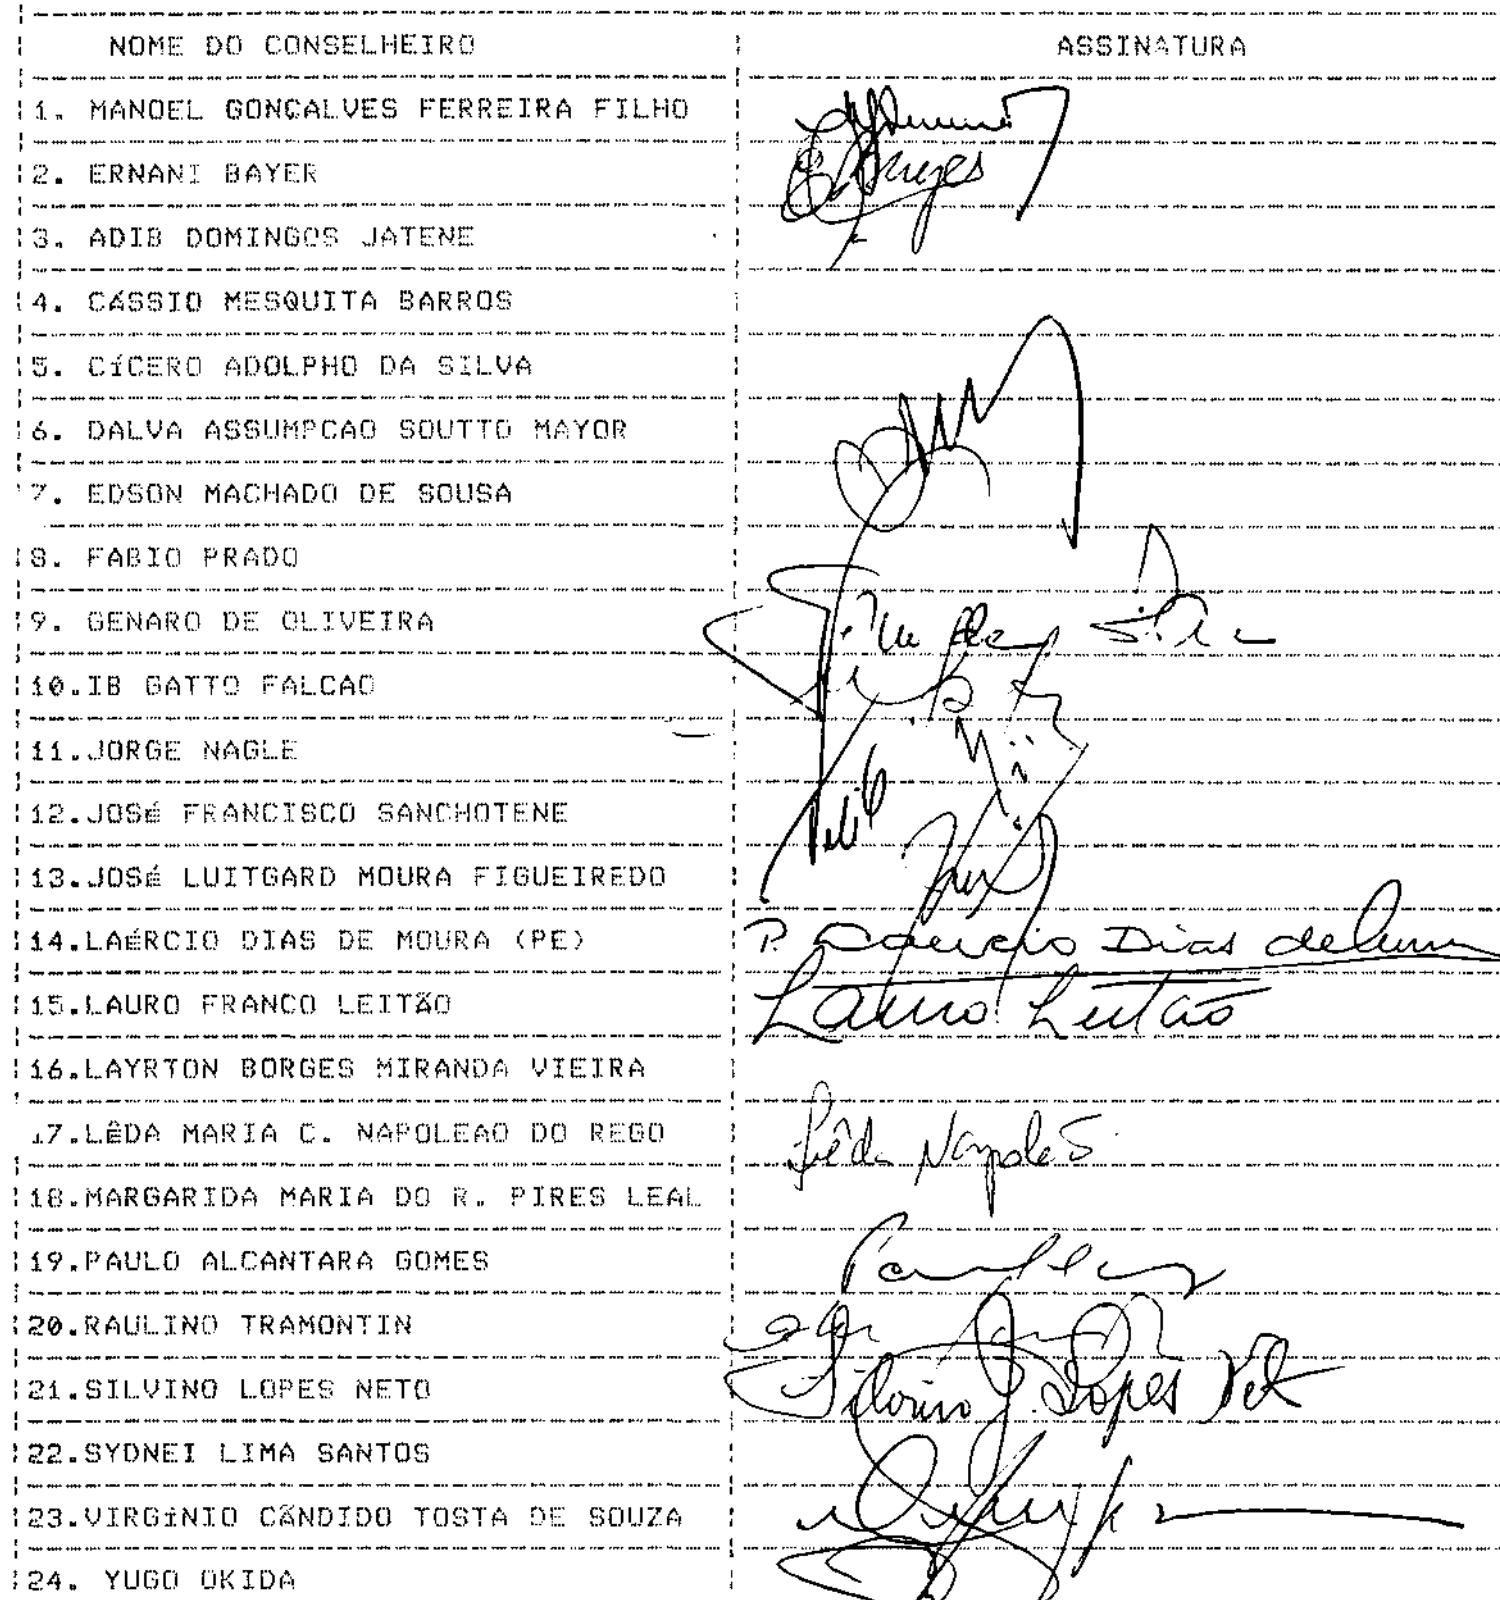 NOME DO CONSELHEIRO ASSINATURA
1. MANOEL GONÇALVES FERREIRA FILHO
2. ERNANI BAYER
3. ADIB DOMINGOS JATENE
4. CÁSSIO MESQUITA BARROS
5. CÍCERO ADOLPHO DA SILVA
6. DALVA ASSUMPCAO SOUTTO MAYOR
7. EDSON MACHADO DE SOUSA
8. FABIO PRADO
9. GENARO DE OLIVEIRA
10.IB GATTO FALCAO
11.JORGE NAGLE
12.JOSÉ FRANCISCO SANCHOTENE
13.JOSÉ LUITGARD MOURA FIGUEIREDO
14.LAÉRCIO DIAS DE MOURA (PE) P. Laercio Dias de
15.LAURO FRANCO LEITÃO Lauro Leitão
16.LAYRTON BORGES MIRANDA VIEIRA
17.LÊDA MARIA C. NAPOLEAO DO REGO Lêda Napoleão
18.MARGARIDA MARIA DO R. PIRES LEAL
19.PAULO ALCANTARA GOMES
20.RAULINO TRAMONTIN
21.SILVINO LOPES NETO Silvino Lopes Neto
22.SYDNEI LIMA SANTOS
23.VIRGÍNIO CÃNDIDO TOSTA DE SOUZA
24. YUGO OKIDA